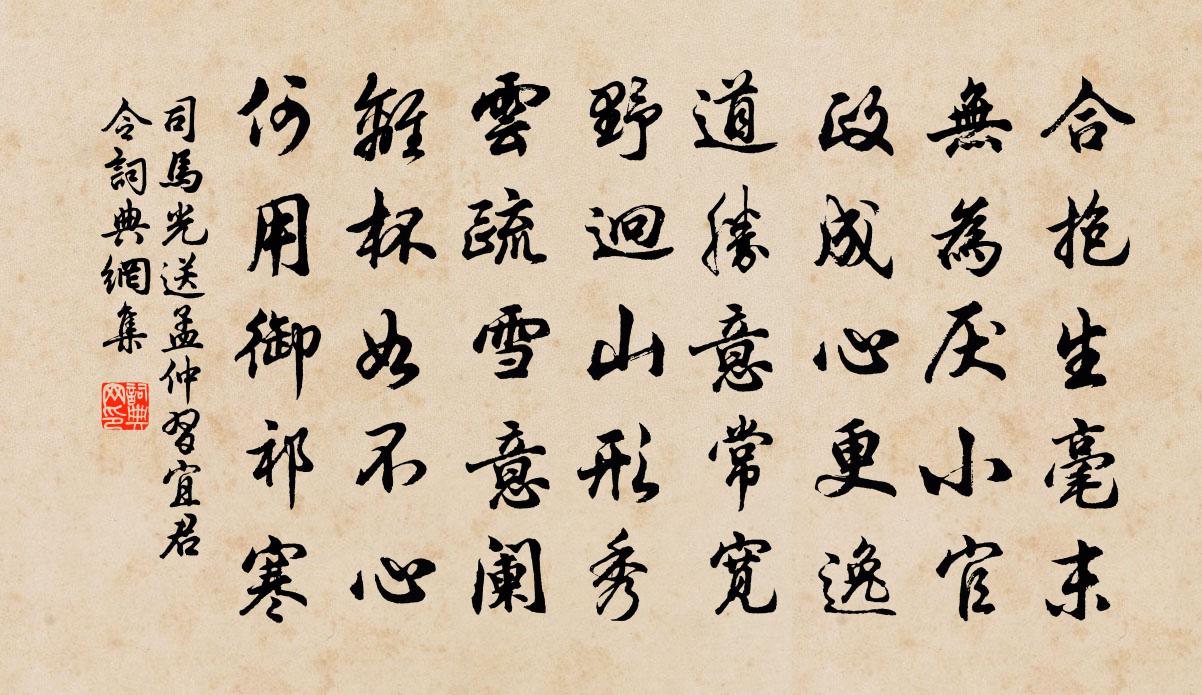 合抱生毫末
無為厌小官
政成心更逸
道勝意常寬
野迥山形秀
雲疏雪意阑
離杯如不心
何用御祁寒
司馬光送孟仲習宜君
令詞典網集
詞典网印